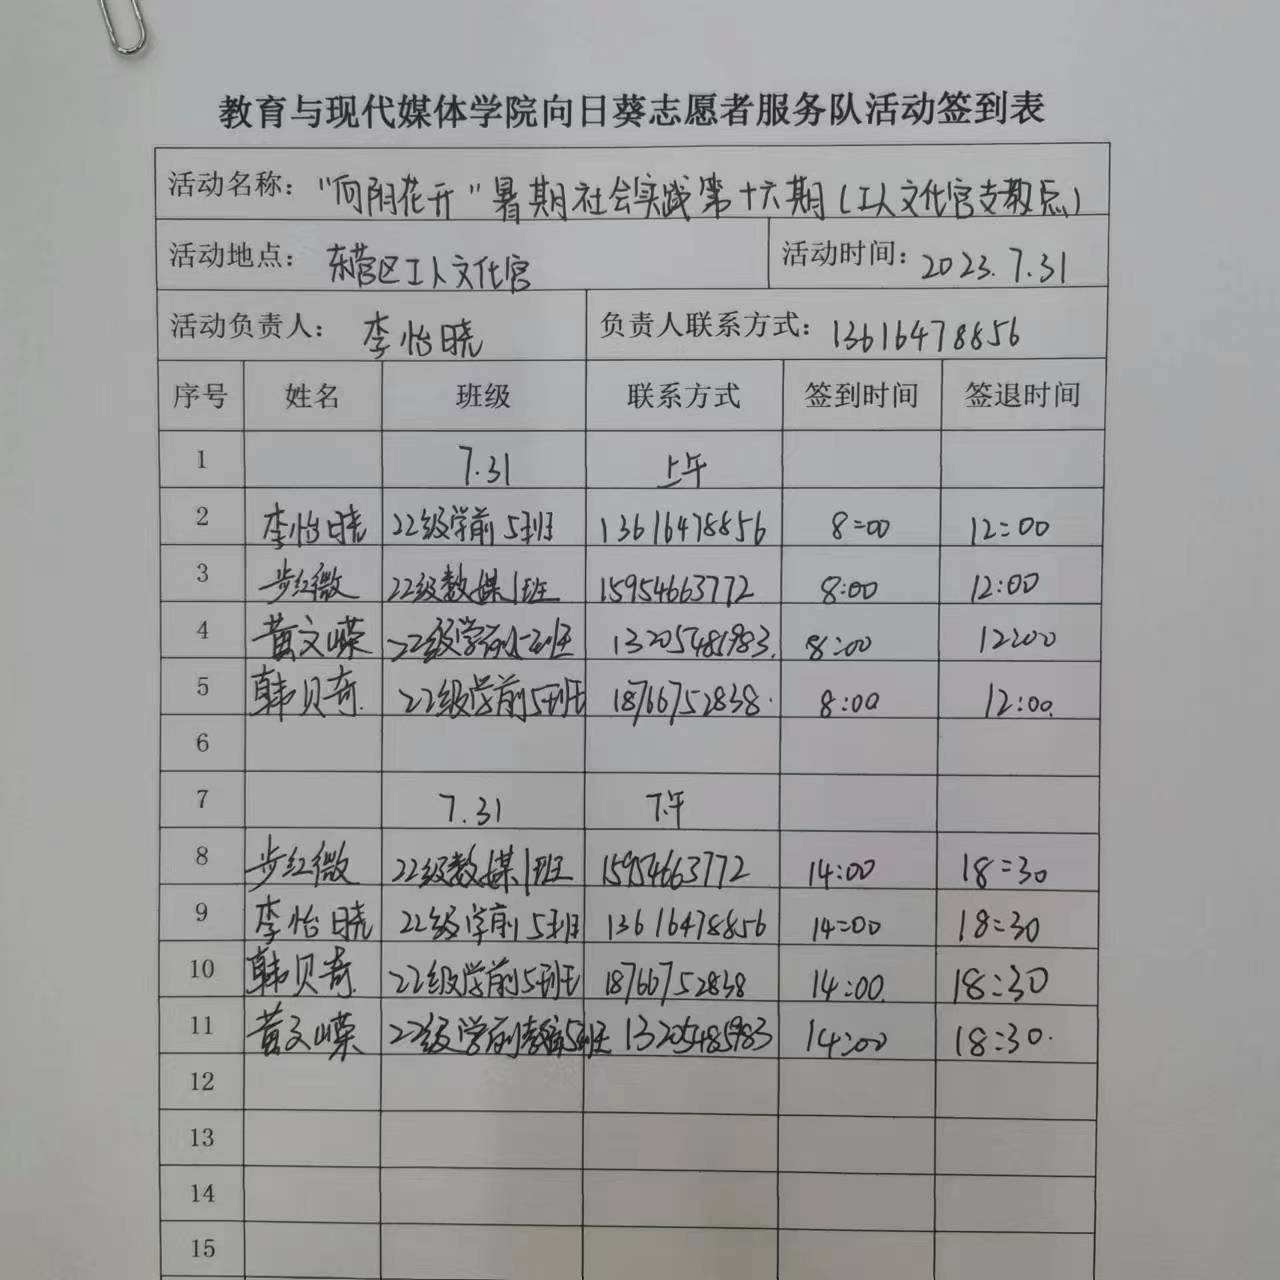 教育与现代媒体学院向日葵志愿者服务队活动签到表
活动名称：“向阳花开”暑期社会实践第十六期（工人文化宫支教点）
活动地点：东营区工人文化宫 活动时间：2023.7.31
活动负责人：李怡晓 负责人联系方式：13616478856
序号 姓名 班级 联系方式 签到时间 签退时间
1 7.31 上午
2 李怡晓 22级学前5班 13616478856 8:00 12:00
3 步红微 22级数媒1班 15954663772 8:00 12:00
4 黄文嵘 22级学前5班 13205485983 8:00 12:00
5 韩贝奇 22级学前5班 18766752838 8:00 12:00
6
7 7.31 下午
8 步红微 22级数媒1班 15954663772 14:00 18:30
9 李怡晓 22级学前5班 13616478856 14:00 18:30
10 韩贝奇 22级学前5班 18766752838 14:00 18:30
11 黄文嵘 22级学前5班 13205485983 14:00 18:30
12
13
14
15